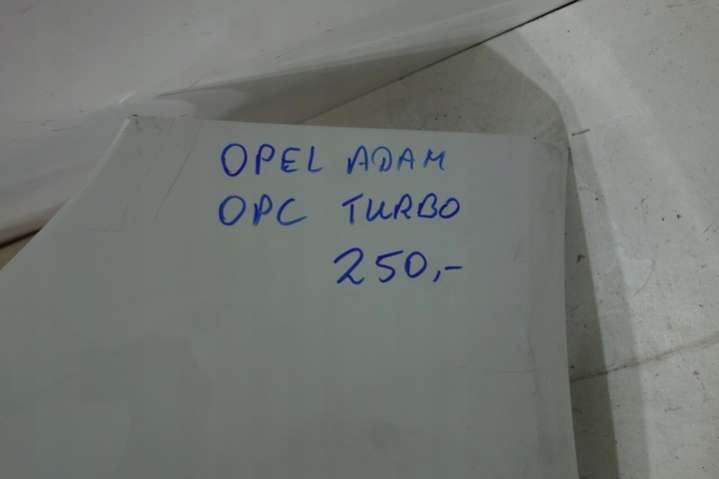 OPEL ADAM
OPC TURBO
250,-